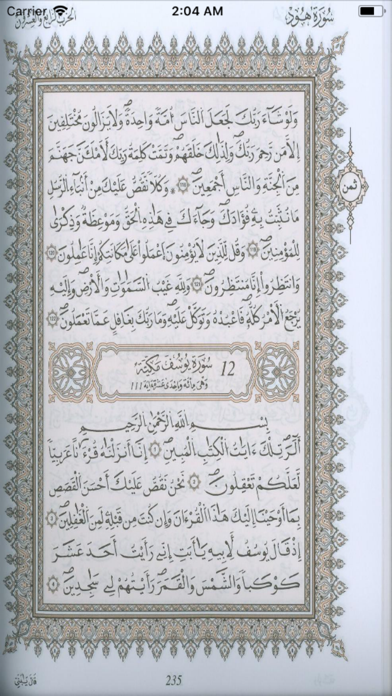 Carrier 2:04 AM
سُورَةُ هُودٍ
وَلَوْ شَآءَ رَبُّكَ لَجَعَلَ اَلنَّاسَ أُمَّةً وَٰحِدَةً وَلَا يَزَالُونَ مُخْتَلِفِينَ
إِلَّا مَن رَّحِمَ رَبُّكَ وَلِذَٰلِكَ خَلَقَهُمْ وَتَمَّتْ كَلِمَةُ رَبِّكَ لَأَمْلَأَنَّ جَهَنَّمَ
مِنَ اَلْجِنَّةِ وَالنَّاسِ أَجْمَعِينَ وَكُلّاً نَّقُصُّ عَلَيْكَ مِنْ أَنۢبَآءِ اِلرُّسُلِ
مَا نُثَبِّتُ بِهِۦ فُؤَادَكَ وَجَآءَكَ فِي هَٰذِهِ اِلْحَقُّ وَمَوْعِظَةٌ وَذِكْرَىٰ
لِلْمُؤْمِنِينَ وَقُل لِّلَّذِينَ لَا يُؤْمِنُونَ اَعْمَلُواْ عَلَىٰ مَكَانَتِكُمْ إِنَّا عَٰمِلُونَ
وَانتَظِرُواْ إِنَّا مُنتَظِرُونَ وَلِلهِ غَيْبُ اُلسَّمَٰوَٰتِ وَالْأَرْضِ وَإِلَيْهِ
يُرْجَعُ اُلْأَمْرُ كُلُّهُۥ فَاعْبُدْهُ وَتَوَكَّلْ عَلَيْهِ وَمَا رَبُّكَ بِغَٰفِلٍ عَمَّا تَعْمَلُونَ
ثمن
12 سُورَةُ يُوسُفَ مَكِّيَّة
وَهِيَ مِائَة وَإِحْدَى عَشْرَةَ آيَة 111
بِسْمِ اِللَّهِ اِلرَّحْمَٰنِ اِلرَّحِيمِ
أَلَٓر تِلْكَ ءَايَٰتُ اُلْكِتَٰبِ اِلْمُبِينِ إِنَّآ أَنزَلْنَٰهُ قُرْءَٰناً عَرَبِيّاً
لَّعَلَّكُمْ تَعْقِلُونَ نَحْنُ نَقُصُّ عَلَيْكَ أَحْسَنَ اَلْقَصَصِ
بِمَآ أَوْحَيْنَآ إِلَيْكَ هَٰذَا اَلْقُرْءَانَ وَإِن كُنتَ مِن قَبْلِهِۦ لَمِنَ اَلْغَٰفِلِينَ
إِذْ قَالَ يُوسُفُ لِأَبِيهِ يَٰٓأَبَتِ إِنِّي رَأَيْتُ أَحَدَ عَشَرَ
كَوْكَباً وَالشَّمْسَ وَالْقَمَرَ رَأَيْتُهُمْ لِي سَٰجِدِينَ
قَالَ يَٰبُنَيِّ
235